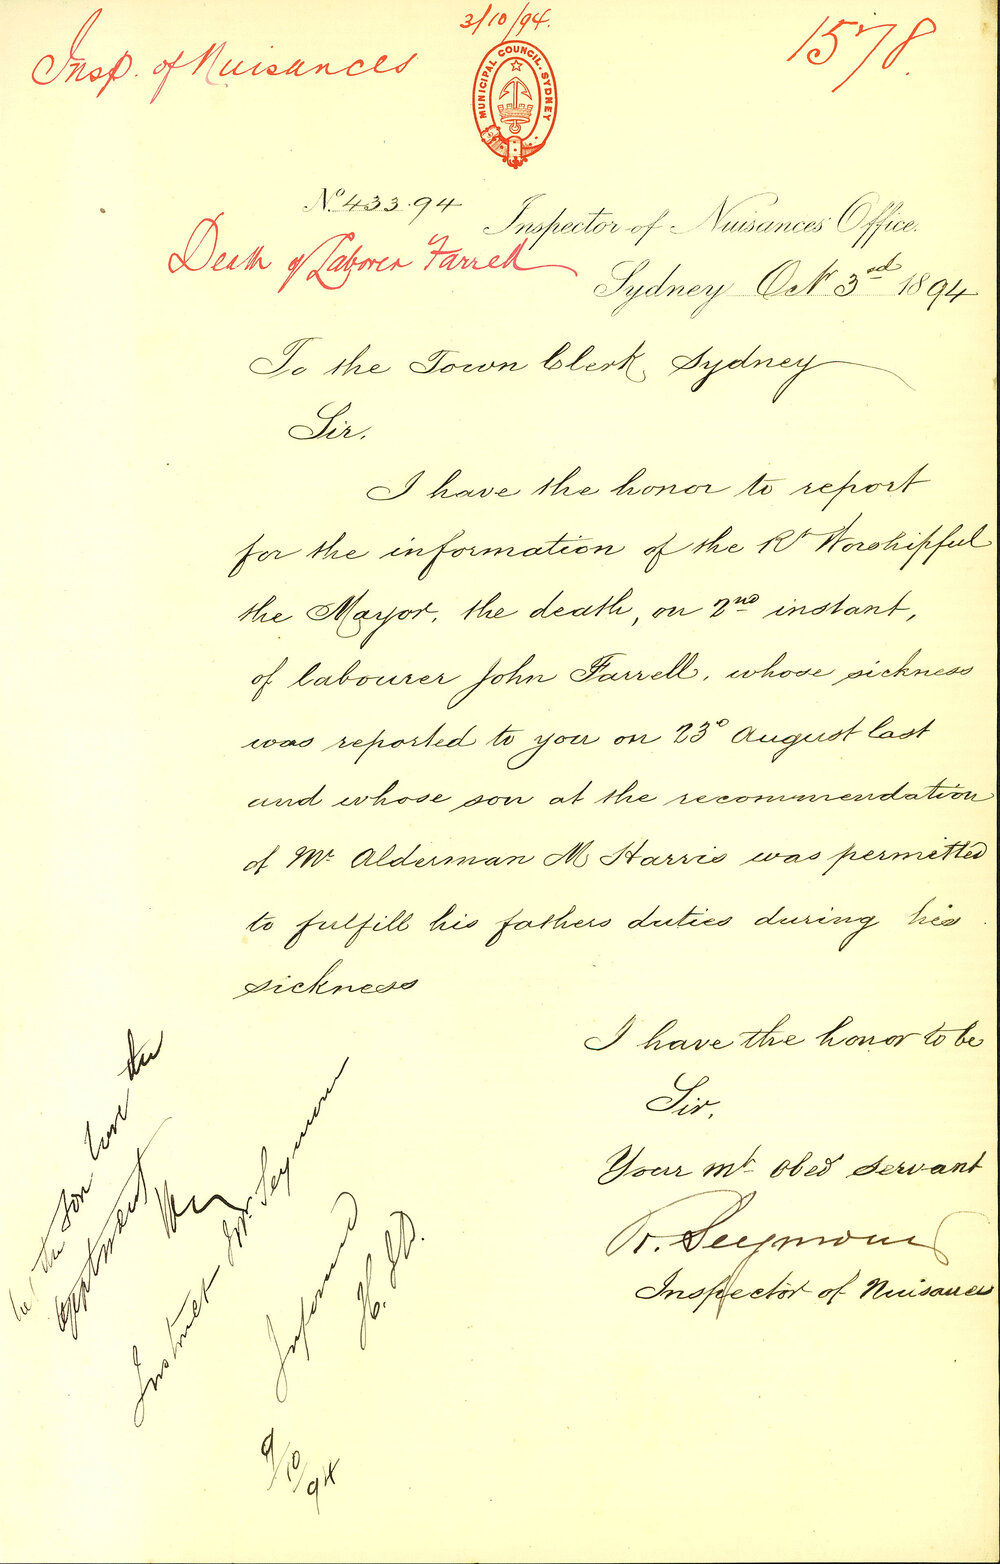 3/10/94.
Insp. of Nuisances
1578.
MUNICIPAL COUNCIL. SYDNEY
No. 433.94
Inspector of Nuisances Office.
Death of Laborer Farrell
Sydney Octr 3rd 1894
To the Town Clerk, Sydney
Sir.
I have the honor to report
for the information of the Rt Worshipful
the Mayor, the death, on 2nd instant,
of labourer John Farrell, whose sickness
was reported to you on 23d August last
and whose son at the recommendation
of Mr Alderman M Harris was permitted
to fulfill his fathers duties during his
sickness
I have the honor to be
Sir,
Your mt obed servant
R. Seymour
Inspector of Nuisances
let the Son have the
apptment
Instruct Mr. Seymour
Informed
9/10/94